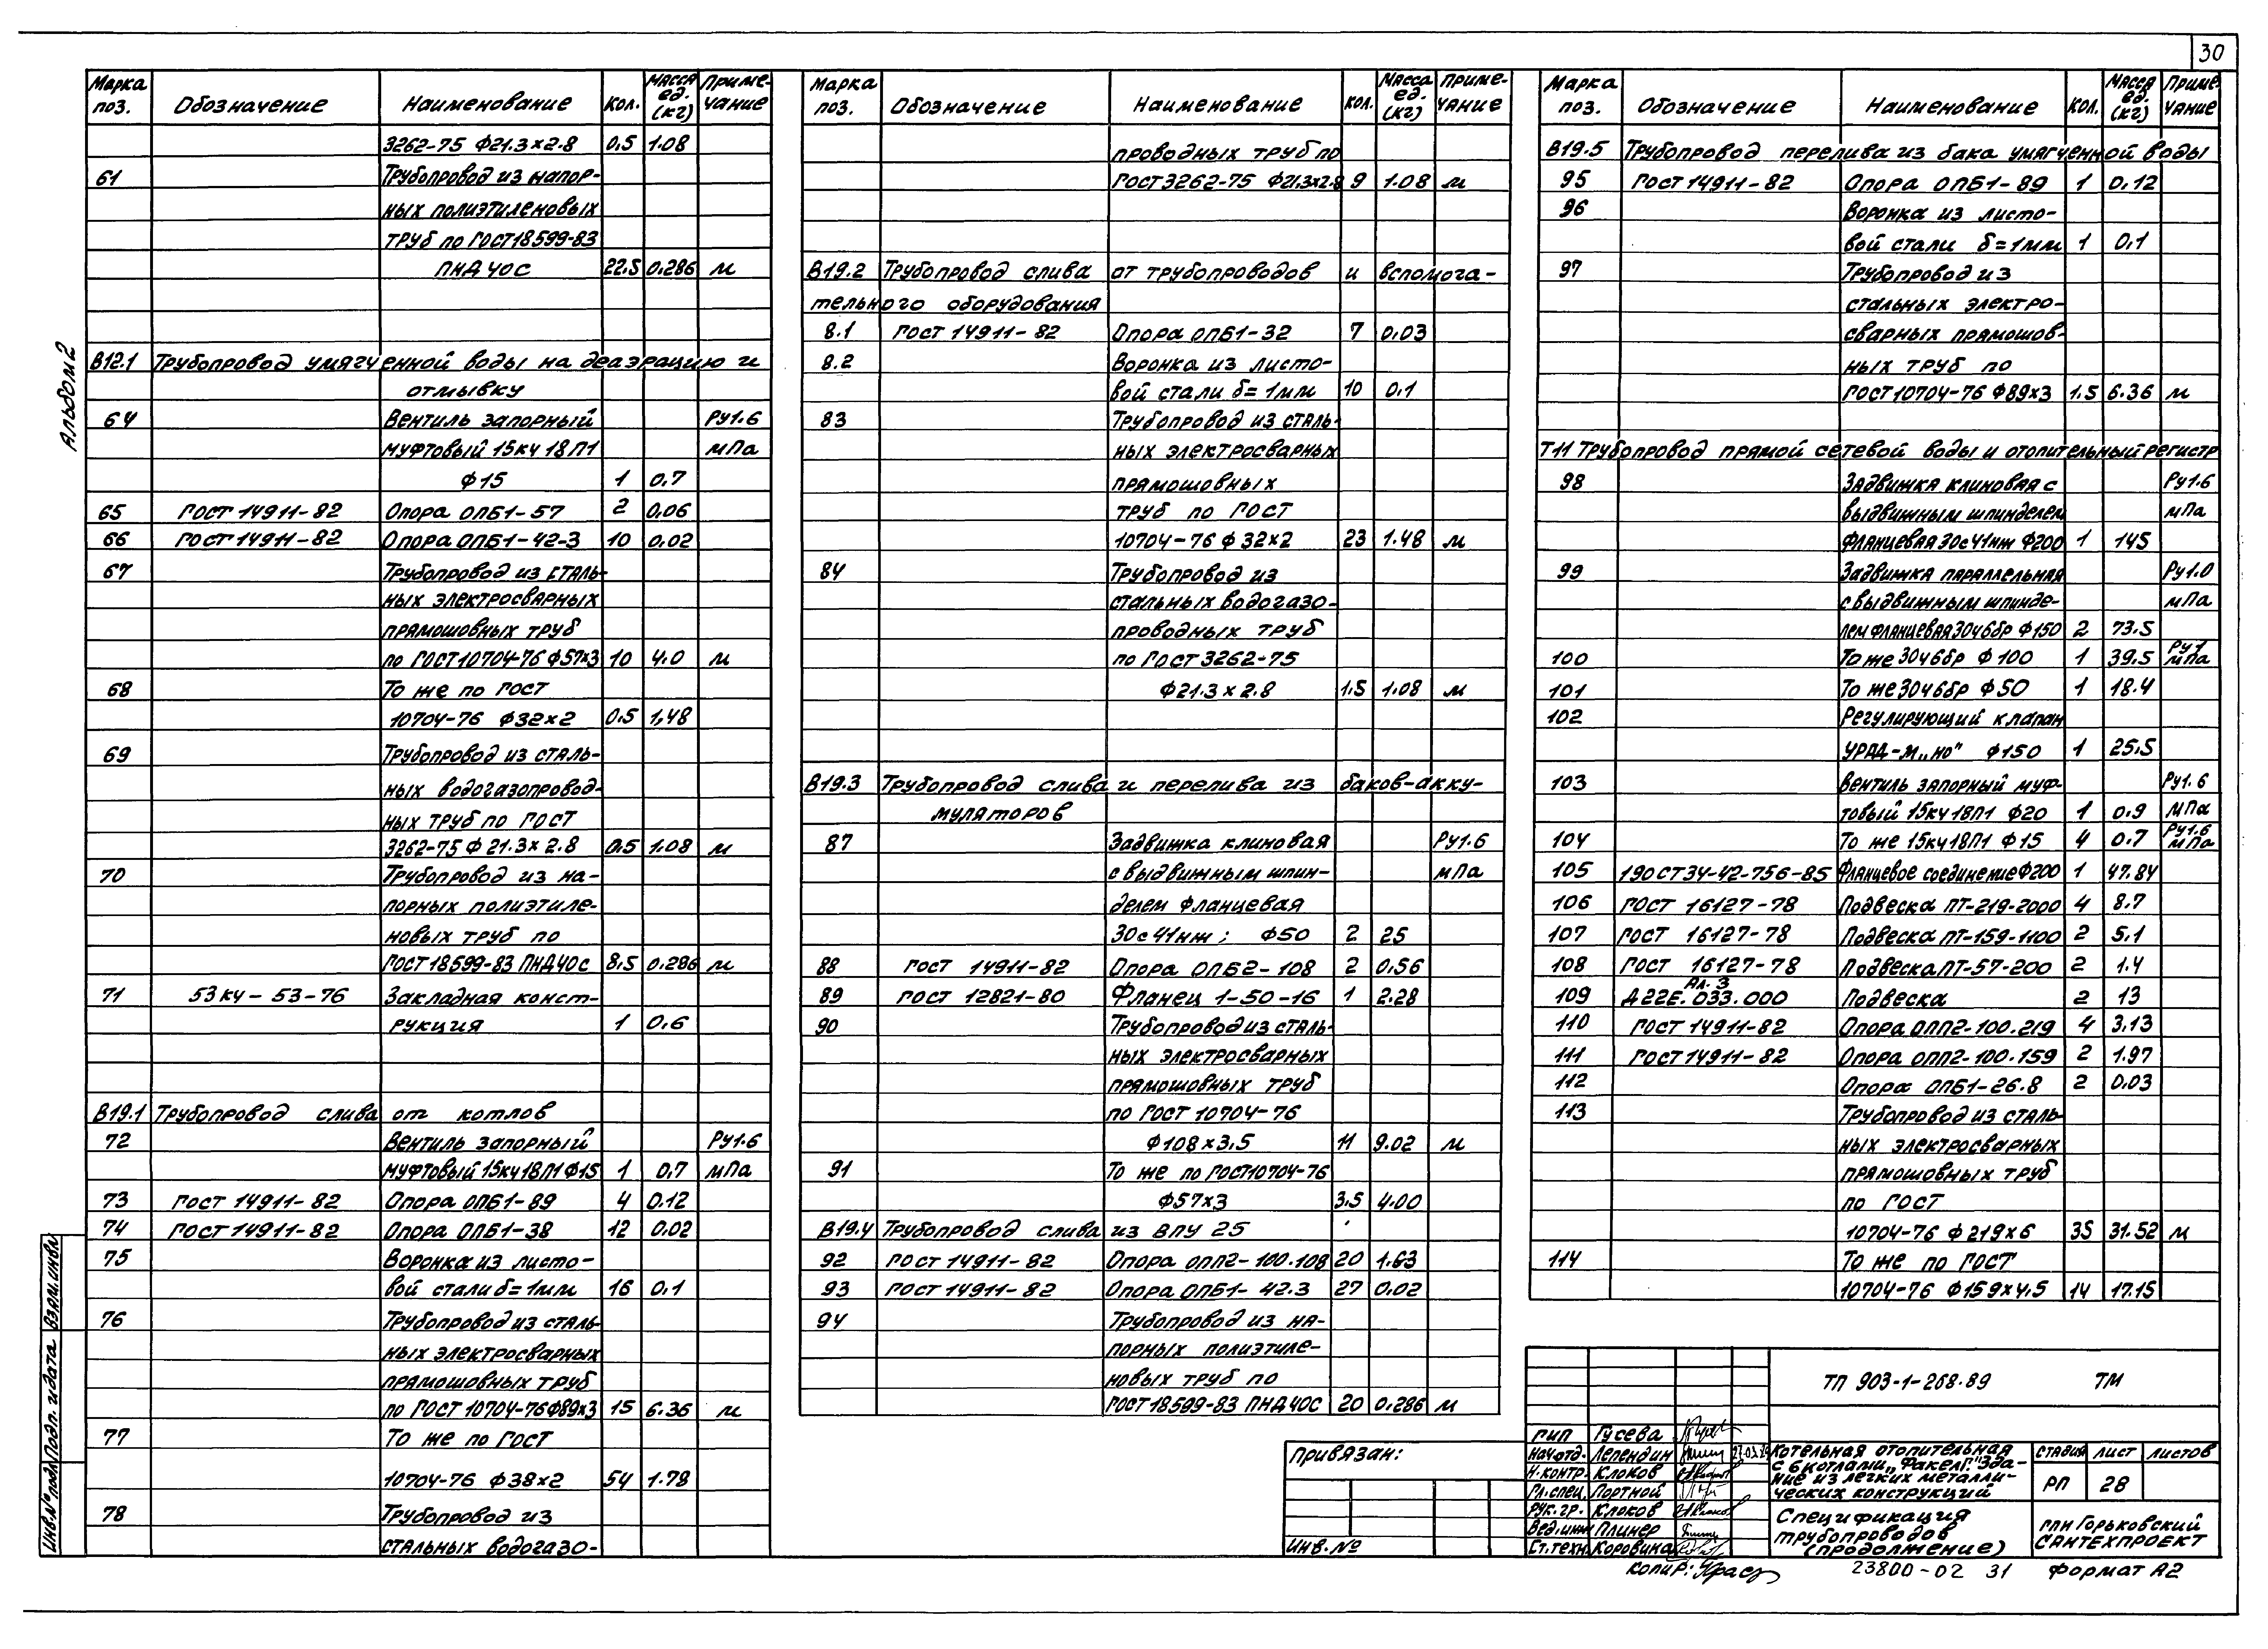 30
Альбом 2
Марка поз. Обозначение Наименование Кол. Масса ед. (кг) Примечание
3262-75 Ф21.3×2.8 0,5 1.08
61 Трубопровод из напор-
ных полиэтиленовых
труб по ГОСТ 18599-83
ПНД 40С 22.5 0.286 м
В12.1 Трубопровод умягченной воды на деаэрацию и
отмывку
64 Вентиль запорный Ру1.6
муфтовый 15кч 18П1 мПа
Ф15 1 0.7
65 ГОСТ 14911-82 Опора ОПБ1-57 2 0,06
66 ГОСТ 14911-82 Опора ОПБ1-42-3 10 0,02
67 Трубопровод из сталь-
ных электросварных
прямошовных труб
по ГОСТ 10704-76 Ф57×3 10 4.0 м
68 То же по ГОСТ
10704-76 Ф32×2 0.5 1,48
69 Трубопровод из сталь-
ных водогазопровод-
ных труб по ГОСТ
3262-75 Ф 21.3×2.8 0.5 1.08 м
70 Трубопровод из на-
порных полиэтиле-
новых труб по
ГОСТ 18599-83 ПНД40С 8,5 0.286 м
71 53кч-53-76 Закладная конст-
рукция 1 0,6
В19.1 Трубопровод слива от котлов
72 Вентиль запорный Ру1.6
муфтовый 15кч18П1 Ф15 1 0,7 мПа
73 ГОСТ 14911-82 Опора ОПБ1-89 4 0.12
74 ГОСТ 14911-82 Опора ОПБ1-38 12 0.02
75 Воронка из листо-
вой стали δ=1мм 16 0,1
76 Трубопровод из сталь-
ных электросварных
прямошовных труб
по ГОСТ 10704-76 Ф89×3 15 6.36 м
77 То же по ГОСТ
10704-76 Ф38×2 54 1.78
78 Трубопровод из
стальных водогазо-
Марка поз. Обозначение Наименование Кол. Масса ед. (кг) Примечание
проводных труб по
ГОСТ 3262-75 Ф21,3×2.8 9 1.08 м
В19.2 Трубопровод слива от трубопроводов и вспомога-
тельного оборудования
8.1 ГОСТ 14911-82 Опора ОПБ1-32 7 0,03
8.2 Воронка из листо-
вой стали δ=1мм 10 0,1
83 Трубопровод из сталь-
ных электросварных
прямошовных
труб по ГОСТ
10704-76 Ф 32×2 23 1.48 м
84 Трубопровод из
стальных водогазо-
проводных труб
по ГОСТ 3262-75
Ф21.3×2.8 1.5 1,08 м
В19.3 Трубопровод слива и перелива из баков-акку-
муляторов
87 Задвижка клиновая Ру1.6
с выдвижным шпин- мПа
делем фланцевая
30с41нж; Ф50 2 25
88 ГОСТ 14911-82 Опора ОПБ2-108 2 0.56
89 ГОСТ 12821-80 Фланец 1-50-16 1 2.28
90 Трубопровод из сталь-
ных электросварных
прямошовных труб
по ГОСТ 10704-76
Ф108×3.5 11 9.02 м
91 То же по ГОСТ10704-76
Ф57×3 3.5 4.00
В19.4 Трубопровод слива из ВПУ 25
92 ГОСТ 14911-82 Опора ОПП2-100.108 20 1.63
93 ГОСТ 14911-82 Опора ОПБ1-42.3 27 0,02
94 Трубопровод из на-
порных полиэтиле-
новых труб по
ГОСТ 18599-83 ПНД40С 20 0.286 м
Марка поз. Обозначение Наименование Кол. Масса ед. (кг) Примечание
В19.5 Трубопровод перелива из бака умягченной воды
95 ГОСТ 14911-82 Опора ОПБ1-89 1 0,12
96 Воронка из листо-
вой стали δ=1мм 1 0,1
97 Трубопровод из
стальных электро-
сварных прямошов-
ных труб по
ГОСТ 10704-76 Ф89×3 1.5 6.36 м
Т11 Трубопровод прямой сетевой воды и отопительный регистр
98 Задвижка клиновая с Ру1.6
выдвижным шпинделем мПа
фланцевая 30с41нж Ф200 1 145
99 Задвижка параллельная Ру1.0
с выдвижным шпинде- мПа
лем фланцевая 30ч6бр Ф150 2 73.5
100 То же 30ч6бр Ф100 1 39.5 Ру1 мПа
101 То же 30ч6бр Ф50 1 18.4
102 Регулирующий клапан
УРРД-М „НО" Ф150 1 25.5
103 Вентиль запорный муф- Ру1.6
товый 15кч18П1 Ф20 1 0.9 мПа
104 То же 15кч18П1 Ф15 4 0.7 Ру1.6 мПа
105 190СТ34-42-756-85 Фланцевое соединение Ф200 1 47.84
106 ГОСТ 16127-78 Подвеска ПТ-219-2000 4 8.7
107 ГОСТ 16127-78 Подвеска ПТ-159-1100 2 5.1
108 ГОСТ 16127-78 Подвеска ПТ-57-200 2 1.4
109 Ал. 3 Д22Е.033.000 Подвеска 2 13
110 ГОСТ 14911-82 Опора ОПП2-100.219 4 3,13
111 ГОСТ 14911-82 Опора ОПП2-100.159 2 1.97
112 Опора ОПБ1-26.8 2 0.03
113 Трубопровод из сталь-
ных электросварных
прямошовных труб
по ГОСТ
10704-76 Ф219×6 35 31.52 м
114 То же по ГОСТ
10704-76 Ф159×4,5 14 17.15
ТП 903-1-268.89 ТМ
ГИП Гусева
Нач.отд. Лепендин
Н.контр. Клоков
Гл.спец. Портной
Рук.гр. Клоков
Вед.инж Плинер
Ст.техн. Коровина
Котельная отопительная
с 6 котлами „Факел-Г". Зда-
ние из легких металли-
ческих конструкций
Стадия Лист Листов
РП 28
Спецификация
трубопроводов
(продолжение)
ГПИ Горьковский
Сантехпроект
Привязан:
Инв. №
Взам.инв.№
Подп. и дата
Инв.№ подл
Копир:
23800-02 31
Формат А2